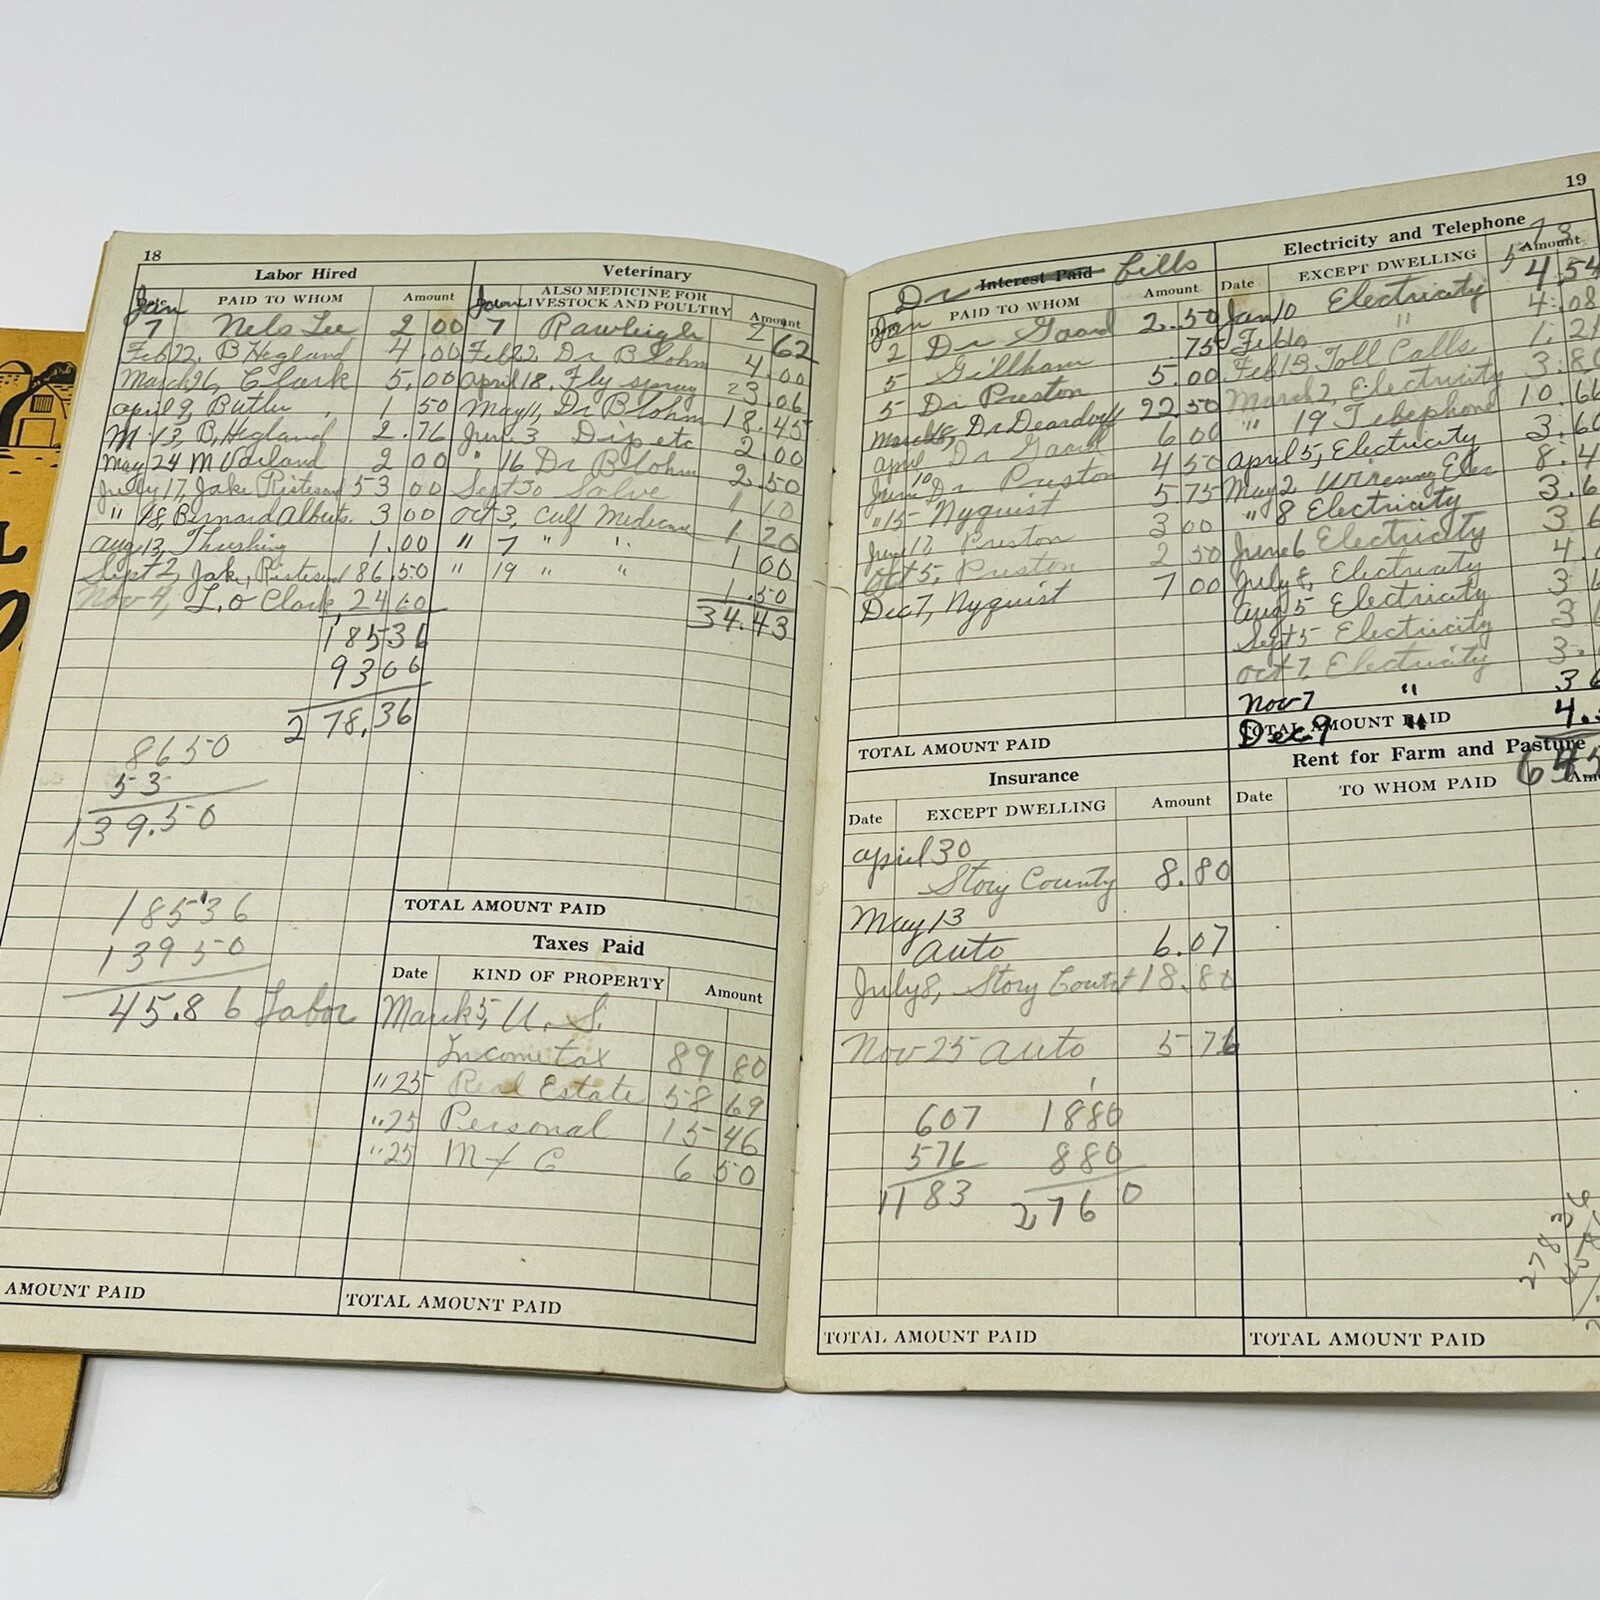 18
Labor Hired
Jan
PAID TO WHOM
Amount
7 Nels Lee 2 00
Feb 22, B Hegland 4.00
March 26, Clark 5.00
April 9, Butler, 1 50
M. 13, B, Hegland 2.76
May 24 M 2 00
July 17, Jake 53 00
" 18, Bernard Alberts. 3 00
Aug 13, Thrshing 1.00
Sept 2, Jake, 86.50
Nov 4, L. O Clark, 24 60
185 36
93 00
278.36
8650
53
139.50
185 36
139 50
45.86 Labor
AMOUNT PAID
Veterinary
ALSO MEDICINE FOR
LIVESTOCK AND POULTRY
Jan
Amount
7 Rawleigh 2 62
Feb 22 Dr Blohm 4.00
April 18. Fly spray 23.06
May 11, Dr Blohm 18.45
June 3 Dip etc 2.00
" 16 Dr Blohm 2.50
Sept 30 Salve 1 10
Oct 3, Calf Medicine 1 20
" 7 " " 1 00
" 19 " " 1.50
34.43
TOTAL AMOUNT PAID
Taxes Paid
Date
KIND OF PROPERTY
Amount
March 5, U. S.
Income tax 89 80
" 25 Real Estate 58 69
" 25 Personal 15 46
" 25 M & C 6 50
TOTAL AMOUNT PAID
19
Dr Interest Paid bills
Jan
PAID TO WHOM
Amount
2 Dr Gaard 2.50
5 Gillham .75
5 Dr Preston 5.00
March 8, Dr Deardoff 22.50
April 10 Dr Gaard 6 00
June Dr Preston 4 50
" 15 Nyquist 5.75
June 12 Preston 3 00
Oct 5, Preston 2 50
Dec 7, Nyquist 7 00
TOTAL AMOUNT PAID
Insurance
Date
EXCEPT DWELLING
Amount
April 30
Story County 8.80
May 13
Auto 6.07
July 8, Story 18.80
Nov 25 Auto 5 76
607 1880
576 880
1183 2760
TOTAL AMOUNT PAID
Electricity and Telephone
Date
EXCEPT DWELLING
Amount
Jan 10 Electricity 4 54
Feb 10 " 4.08
Feb 13 Toll Calls 1.21
March 2, Electricity
" 19 Telephone 10.66
April 5, Electricity
May 2 Wirenng
" 8 Electricity
June 6 Electricity
July 8, Electricity
Aug 5 Electricity
Sept 5 Electricity
Oct 7, Electricity
Nov 7 "
Dec 9 "
TOTAL AMOUNT PAID
Rent for Farm and Pasture
Date
TO WHOM PAID
TOTAL AMOUNT PAID
278 36